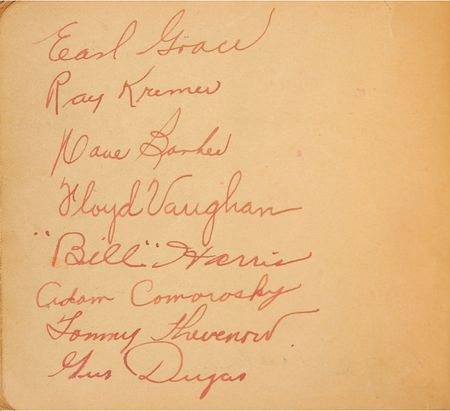 Earl Grace
Ray Kremer
Dave Barbee
Floyd Vaughan
"Bill" Harris
Adam Comorosky
Tommy Thevenow
Gus Dugas